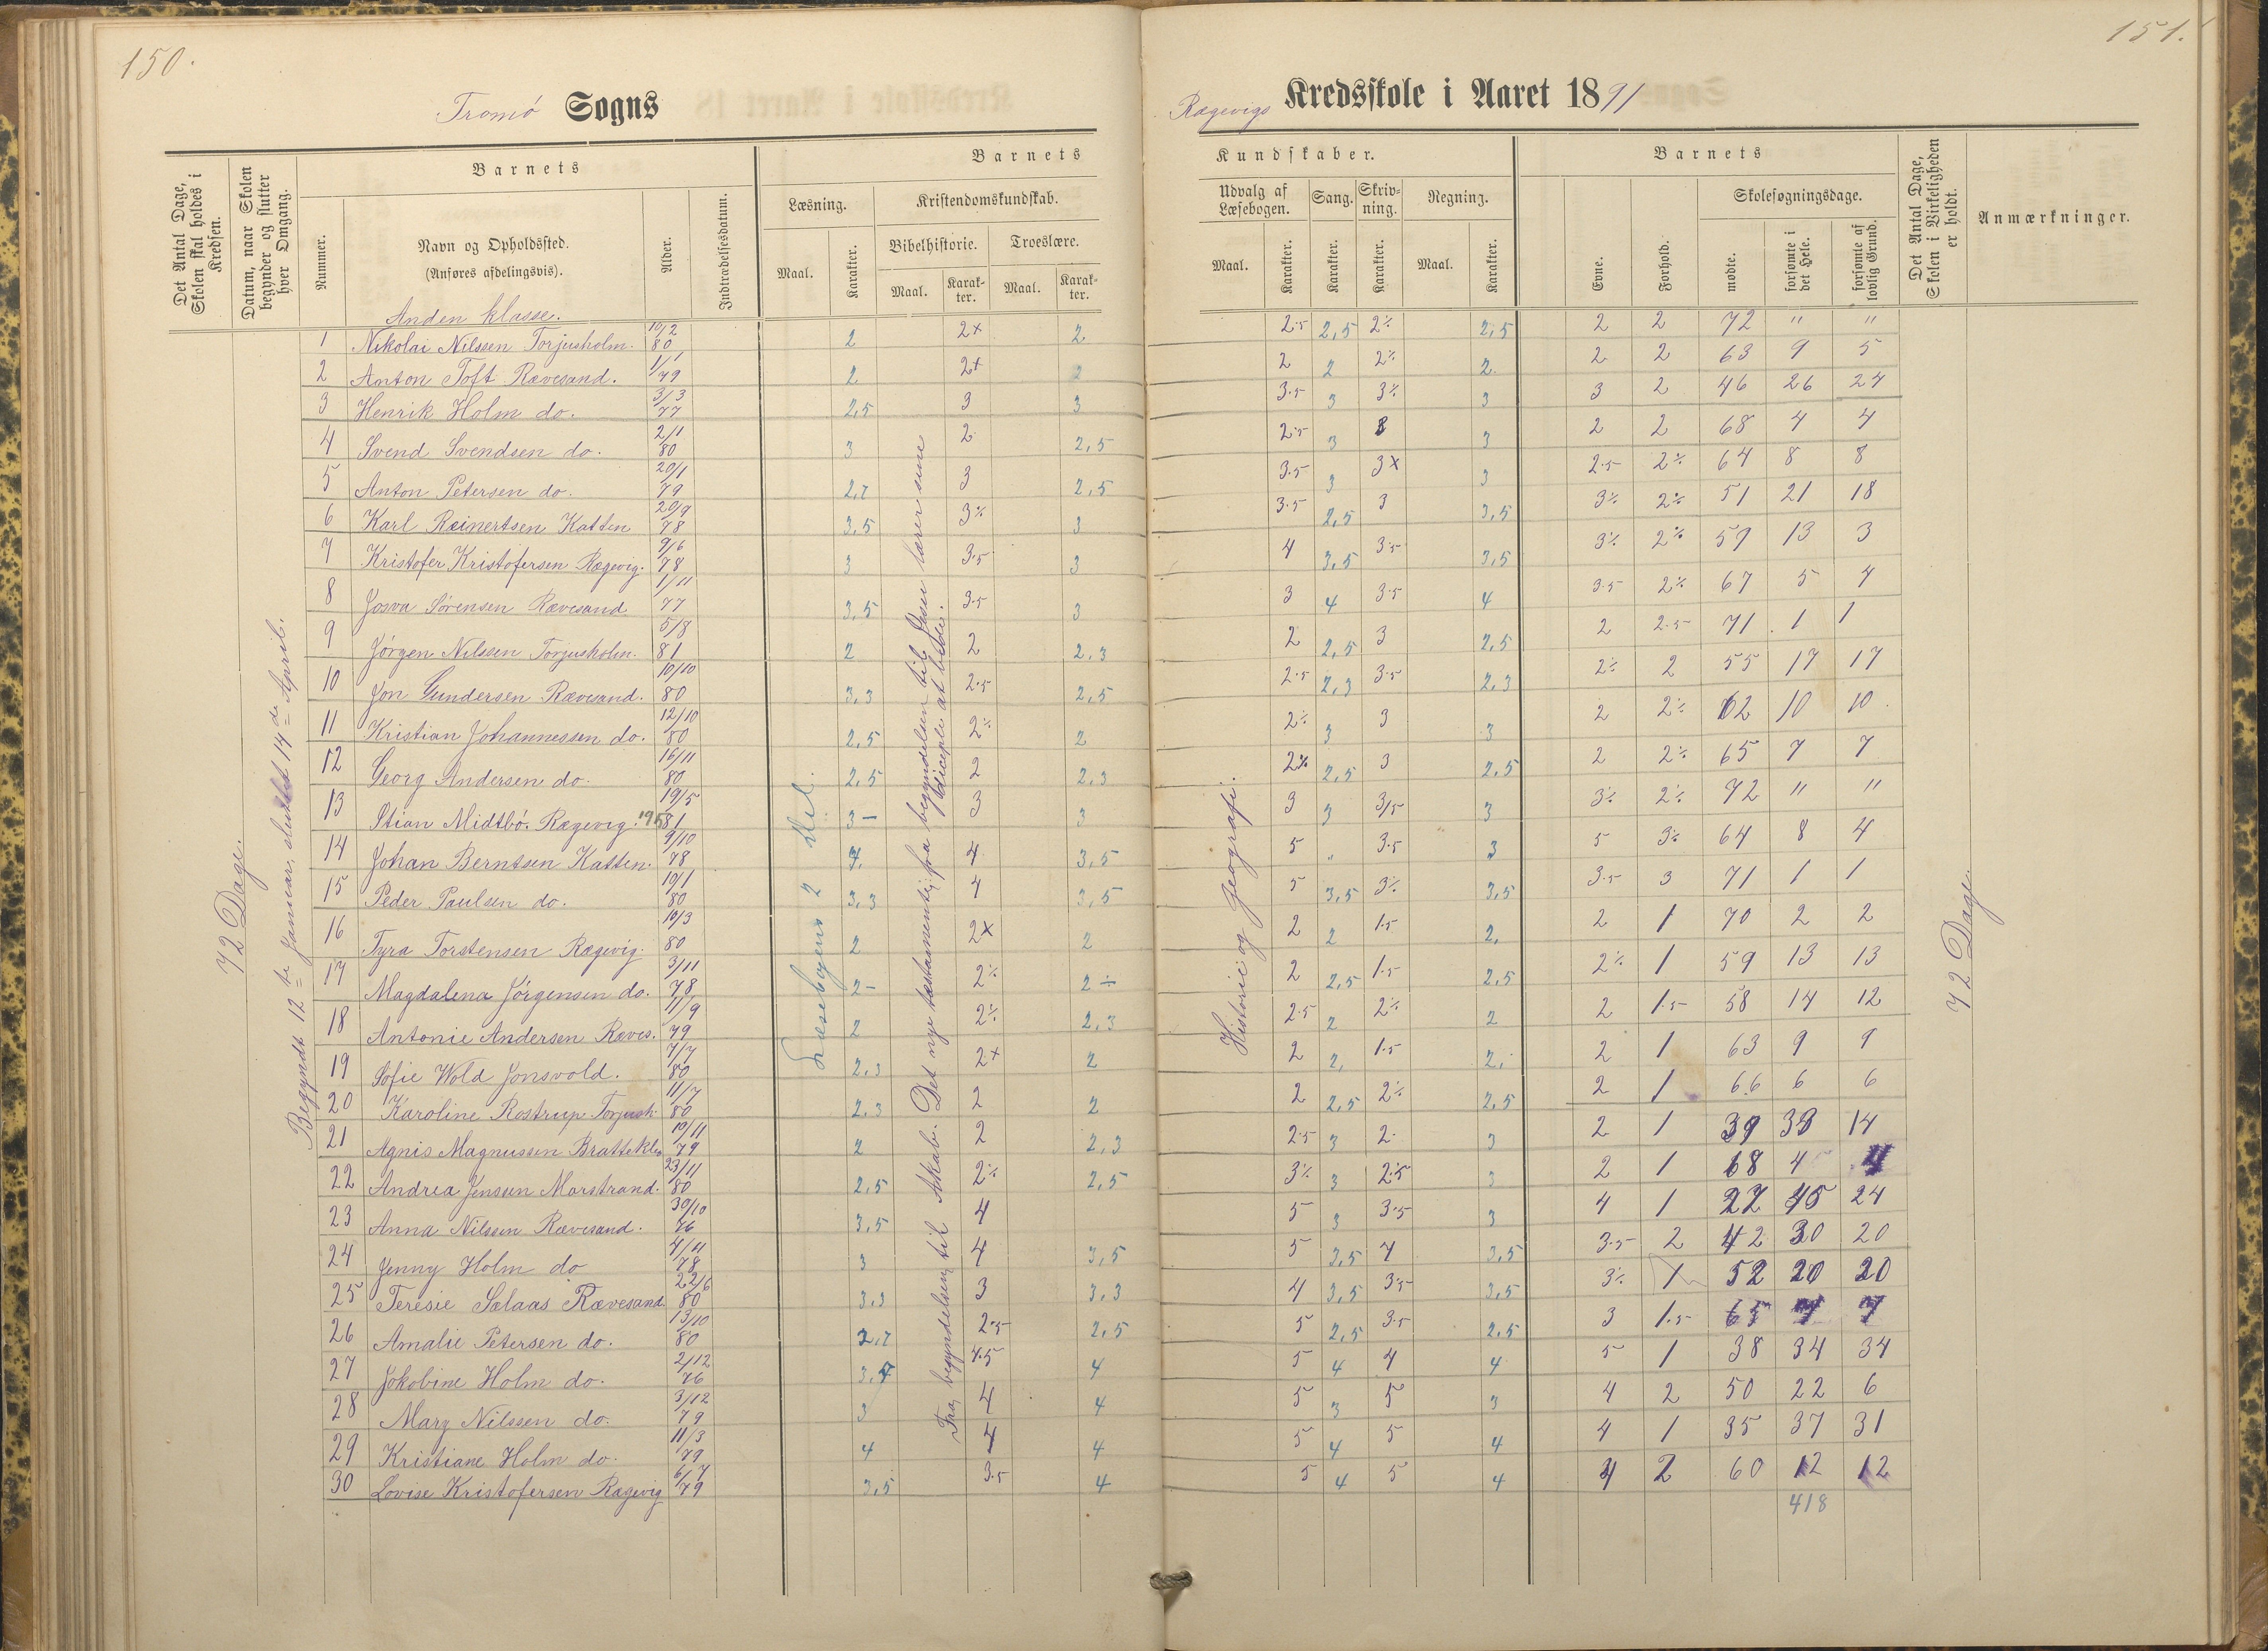 150.
Tromö Sogns
Det Antal Dage, Skolen skal holdes i Kredsen.
Datum, naar Skolen begynder og slutter hver Omgang.
Barnets
Nummer.
Navn og Opholdssted.
(Anføres afdelingsvis).
Alder.
Indtrædelsesdatum.
Barnets
Læsning.
Maal.
Karakter.
Kristendomskundskab.
Bibelhistorie.
Maal.
Karakter.
Troeslære.
Maal.
Karakter.
72 Dage.
Begyndt 12te Januar, sluttet 14de April.
Læsebogens 2 del.
Det nye testamente; fra begyndelsen til Jesu lærer sine diciple at bede.
Fra begyndelsen til
Anden klasse.
1 Nikolai Nilssen Torjusholm. 10/2 80 2 2+ 2
2 Anton Toft Rævesand. 1/1 79 2 2+ 2
3 Henrik Holm do. 3/3 77 2,5 3 3
4 Svend Svendsen do. 2/1 80 3 2 2,5
5 Anton Petersen do. 20/1 79 2,7 3 2,5
6 Karl Reinertsen Katten 20/9 78 3,5 3÷ 3
7 Kristofer Kristofersen Rægevig. 9/6 78 3 3.5 3
8 Josva Sörensen Rævesand 1/11 77 3,5 3.5 3
9 Jörgen Nilssen Torjusholm. 5/8 81 2 2 2,3
10 Jon Gundersen Rævesand. 10/10 80 3,3 2.5 2,5
11 Kristian Johannessen do. 12/10 80 2,5 2÷ 2
12 Georg Andersen do. 16/11 80 2,5 2 2,3
13 Stian Midtbö. Rægevig. 19/5 81 3- 3 3
14 Johan Berntsen Katten. 9/10 78 4. 4 3,5
15 Peder Paulsen do. 10/1 80 3,3 4 3,5
16 Tyra Torstensen Rægevig. 10/3 80 2 2+ 2
17 Magdalena Jörgensen do. 3/11 78 2- 2÷ 2÷
18 Antonie Andersen Ræves. 11/9 79 2 2÷ 2,3
19 Sofie Wold Jonsvold. 7/7 80 2,3 2+ 2
20 Karoline Rostrup Torjush. 11/7 80 2,3 2 2
21 Agnis Magnussen Bratteklev 10/11 79 2 2 2,3
22 Andrea Jensen Marstrand. 23/11 80 2,5 2÷ 2,5
23 Anna Nilssen Rævesand. 30/10 76 3,5 4
24 Jenny Holm do 4/11 78 3 4 3,5
25 Teresie Salaas Rævesand. 22/6 80 3,3 3 3,3
26 Amalie Petersen do. 13/10 80 2,7 2.5 2,5
27 Jokobine Holm do. 2/12 76 3,7 4.5 4
28 Mary Nilssen do. 3/12 79 3 4 4
29 Kristiane Holm do. 11/3 79 4 4 4
30 Lovise Kristofersen Rægevig 6/7 79 3,5 3.5 4
151.
Rægevigs Kredsskole i Aaret 1891
Kundskaber.
Udvalg af Læsebogen.
Maal.
Karakter.
Sang.
Karakter.
Skrivning.
Karakter.
Regning.
Maal.
Karakter.
Barnets
Evne.
Forhold.
Skolesøgningsdage.
mødte.
forsømte i det Hele.
forsømte af lovlig Grund.
Det Antal Dage, Skolen i Virkeligheden er holdt.
Anmærkninger.
Historie og geografi.
72 Dage.
2.5 2,5 2÷ 2,5 2 2 72 " "
2 2 2÷ 2 2 2 63 9 5
3.5 3 3÷ 3 3 2 46 26 24
2.5 3 3 2 2 68 4 4
3.5 3 3+ 3 2.5 2÷ 64 8 8
3.5 2,5 3 3,5 3÷ 2÷ 51 21 18
4 3,5 3.5 3,5 3÷ 2÷ 59 13 3
3 4 3.5 4 3.5 2÷ 67 5 4
2 2,5 3 2,5 2 2.5 71 1 1
2.5 2,3 3.5 2,3 2÷ 2 55 17 17
2÷ 3 3 3 2 2÷ 62 10 10
2÷ 2,5 3 2,5 2 2÷ 65 7 7
3 3 3/5 3 3÷ 2÷ 72 " "
5 " 3.5 3 5 3÷ 64 8 4
5 3,5 3÷ 3,5 3.5 3 71 1 1
2 2 1.5 2, 2 1 70 2 2
2 2,5 1.5 2,5 2÷ 1 59 13 13
2.5 2 2÷ 2 2 1.5 58 14 12
2 2, 1.5 2, 2 1 63 9 9
2 2,5 2÷ 2,5 2 1 66 6 6
2.5 3 2. 3 2 1 39 33 14
3÷ 3 2.5 3 2 1 68 4 4
5 3 3.5 3 4 1 27 45 24
5 3,5 4 3,5 3.5 2 42 30 20
4 3,5 3.5 3,5 3÷ 1 52 20 20
5 2,5 3.5 2,5 3 1.5 65 7 7
5 4 4 4 5 1 38 34 34
5 3 5 3 4 2 50 22 6
5 4 5 4 4 1 35 37 31
5 4 5 4 4 2 60 12 12
418